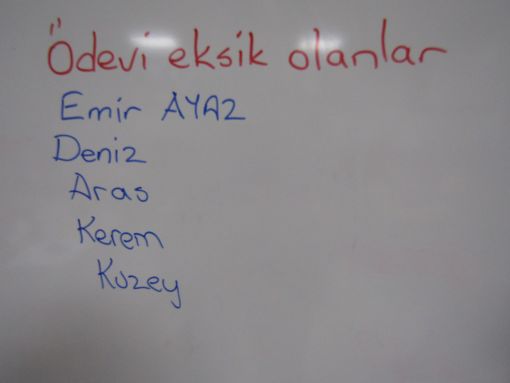 Ödevi eksik olanlar
Emir AYAZ
Deniz
Aras
Kerem
Kuzey